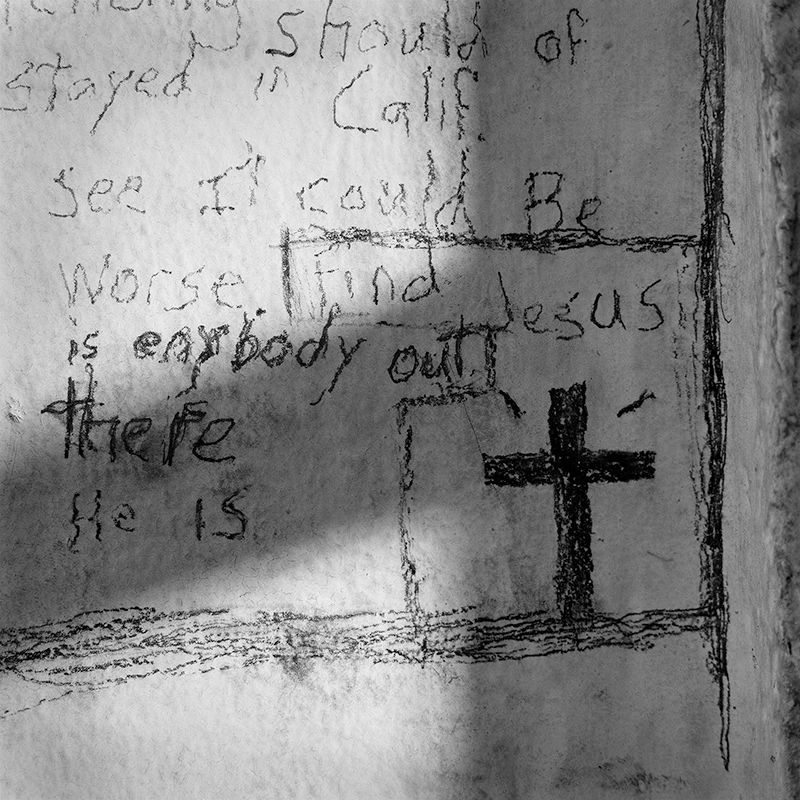 should of
stayed in Calif.
See It could Be
Worse. find Jesus
is enybody out
there
He is